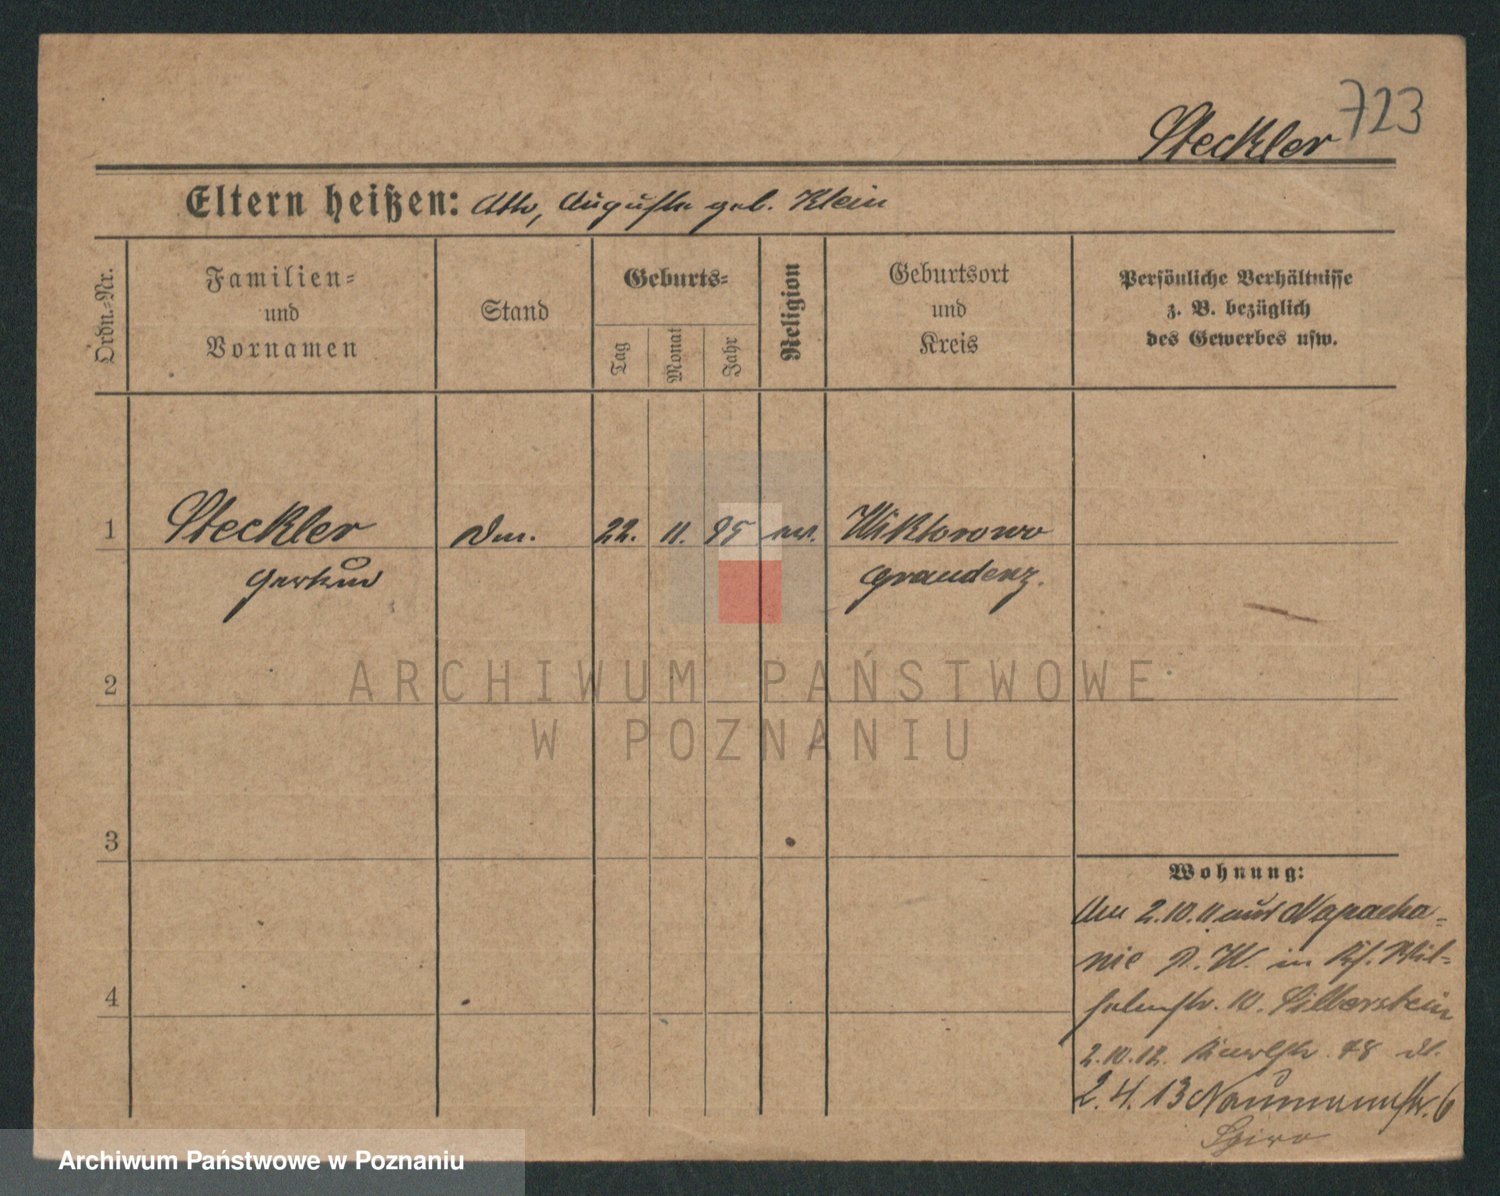 723
Steckler
Eltern heißen: Otto, Auguste geb. Klein
Ordn.-Nr.
Familien- und Vornamen
Stand
Geburts-
Tag
Monat
Jahr
Religion
Geburtsort und Kreis
Persönliche Verhältnisse
z. B. bezüglich
des Gewerbes usw.
1 Steckler 22. 11. 95 Wiktorowo
Gertrud Graudenz.
2
3
4
Wohnung:
Am 2.10.11 aus Napacha-
nie P. W. in Wil-
helmstr. 10. Silberstein
2.10.12.
2.4.13 Naumannstr. 6
Spiro
ARCHIWUM PAŃSTWOWE
W POZNANIU
Archiwum Państwowe w Poznaniu